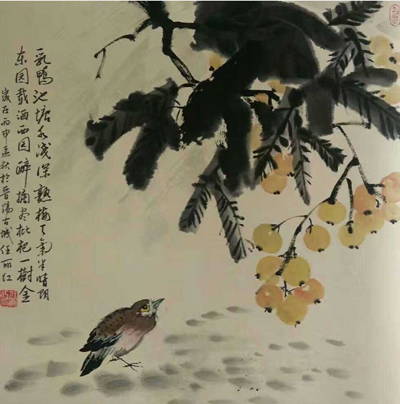 乳鸭池塘水浅深熟梅天氣半晴阴
东园载酒西园醉摘尽枇杷一树金
歲在丙申孟秋於晋阳古城任丽红